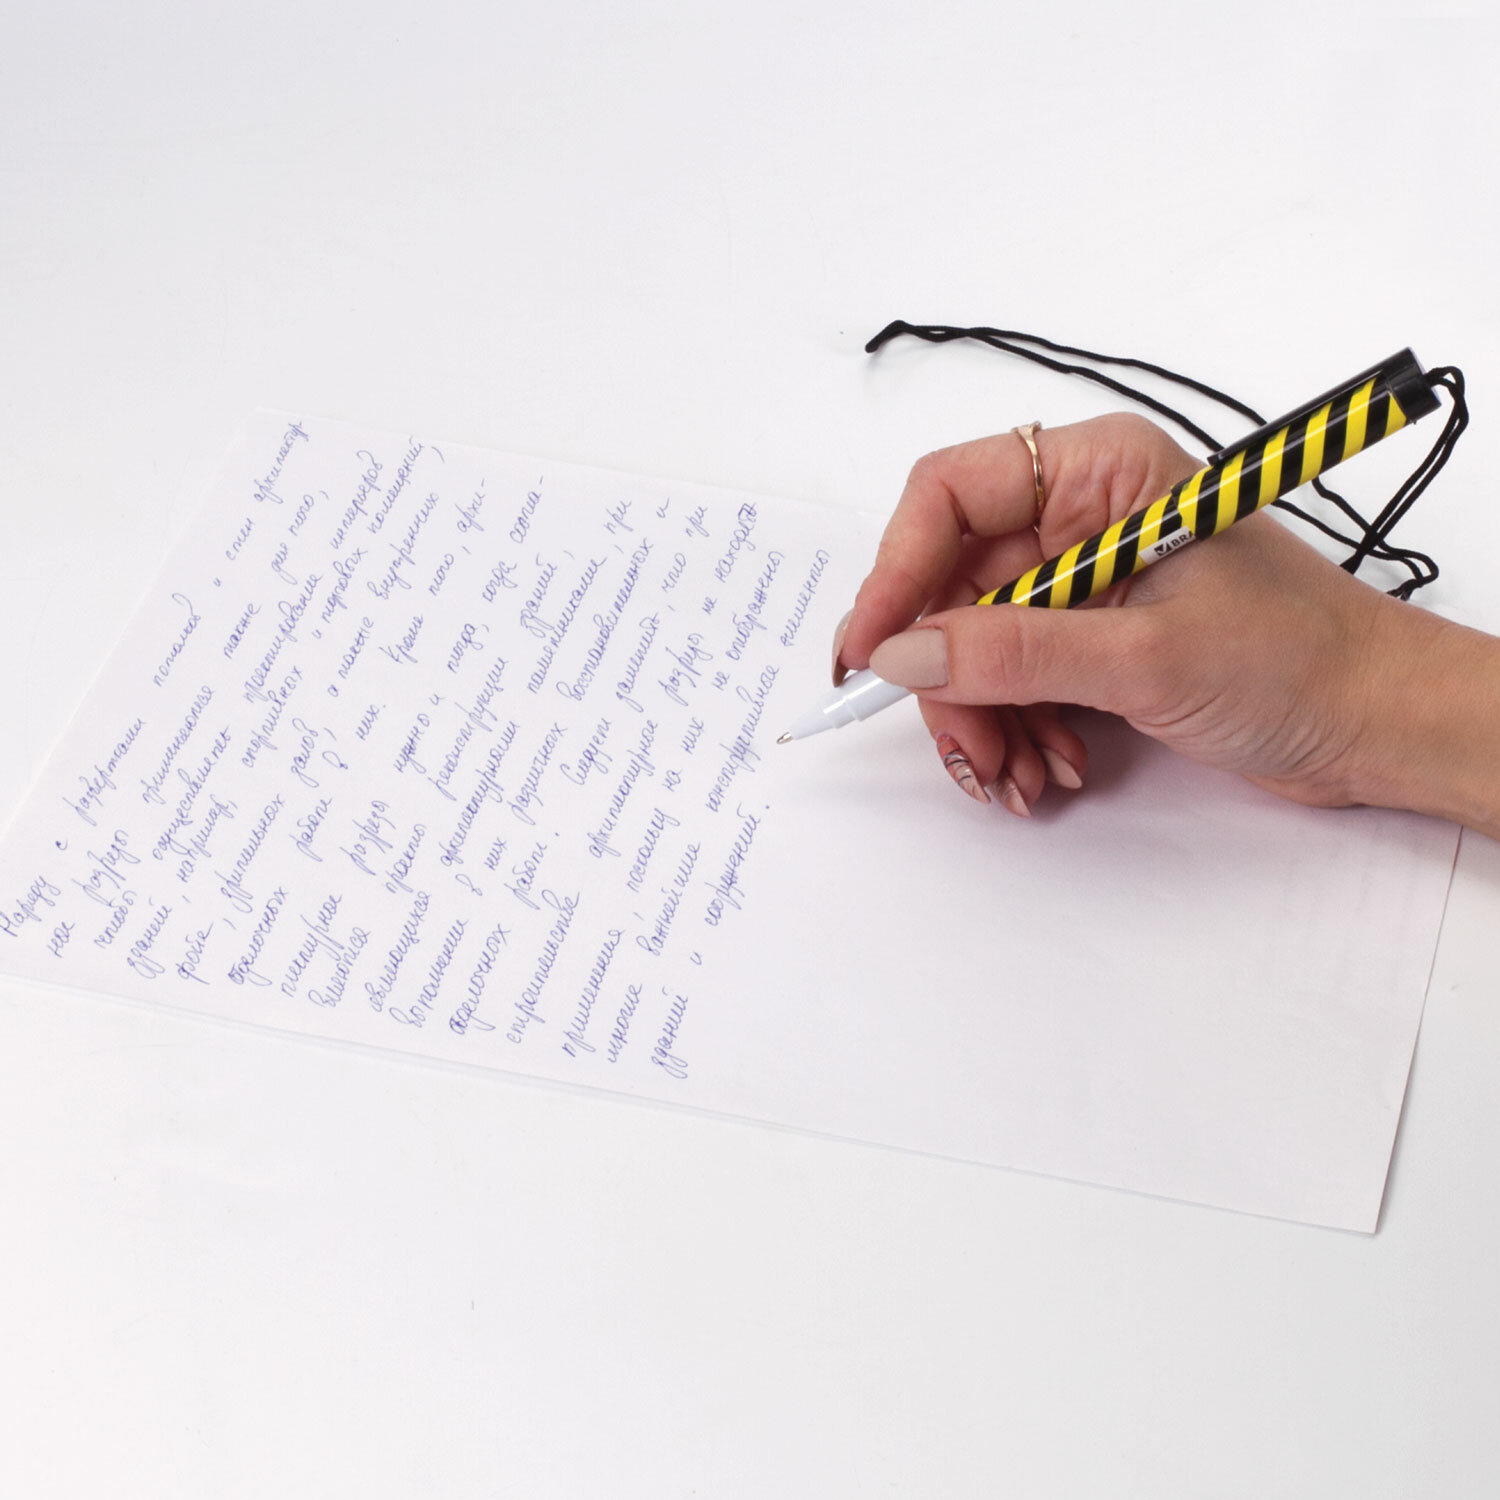 Наряду с развертками потолков и стен архитектур
ные разрезы применяются также для того,
чтобы осуществлять проектирование интерьеров
зданий, например, спортивных и торговых помещений,
фойе, зрительных залов, а также внутренних
отделочных работ в них. Кроме того, архи-
тектурные разрезы нужно и тогда, когда соста-
вляются проекты реконструкции зданий,
являющихся архитектурными памятниками, при
выполнении в них различных восстановительных и
отделочных работ. Следует заметить, что при
строительстве архитектурные разрезы не находят
применения, поскольку на них не отображены
многие важнейшие конструктивные элементы
зданий и сооружений.
BRA